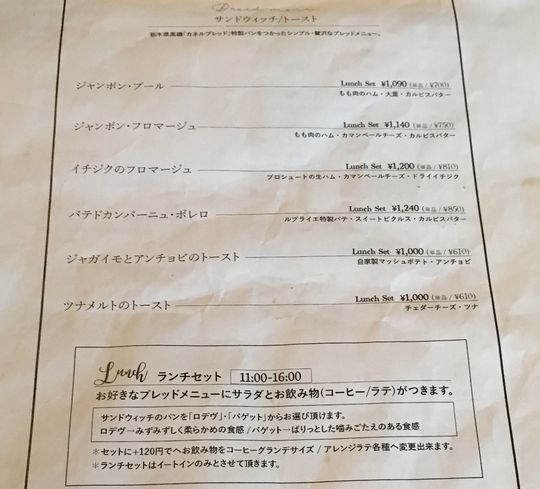 Bread menu
サンドウィッチ/トースト
栃木県黒磯「カネルブレッド」特製パンをつかったシンプル・贅沢なブレッドメニュー。
ジャンボン・ブール Lunch Set ¥1,090 (単品 / ¥700)
もも肉のハム・大葉・カルピスバター
ジャンボン・フロマージュ Lunch Set ¥1,140 (単品 / ¥750)
もも肉のハム・カマンベールチーズ・カルピスバター
イチジクのフロマージュ Lunch Set ¥1,200 (単品 / ¥810)
プロシュートの生ハム・カマンベールチーズ・ドライイチジク
パテドカンバーニュ・ボレロ Lunch Set ¥1,240 (単品 / ¥850)
ルプライエ特製パテ・スイートピクルス・カルピスバター
ジャガイモとアンチョビのトースト Lunch Set ¥1,000 (単品 / ¥610)
自家製マッシュポテト・アンチョビ
ツナメルトのトースト Lunch Set ¥1,000 (単品 / ¥610)
チェダーチーズ・ツナ
Lunch ランチセット 11:00-16:00
お好きなブレッドメニューにサラダとお飲み物(コーヒー/ラテ)がつきます。
サンドウィッチのパンを「ロデヴ」・「バゲット」からお選び頂けます。
ロデヴ→みずみずしく柔らかめの食感 / バゲット→ぱりっとした噛みごたえのある食感
＊セットに+120円でへお飲み物をコーヒーグランデサイズ / アレンジラテ各種へ変更出来ます。
＊ランチセットはイートインのみとさせて頂きます。